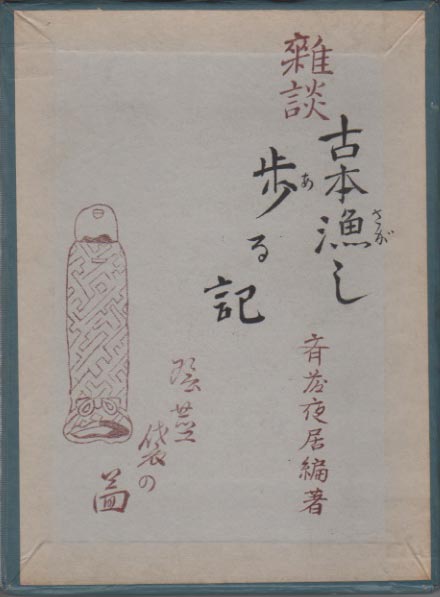 雜談
古本漁し
さが
歩る記
あ
斉藤夜居編著
袋の